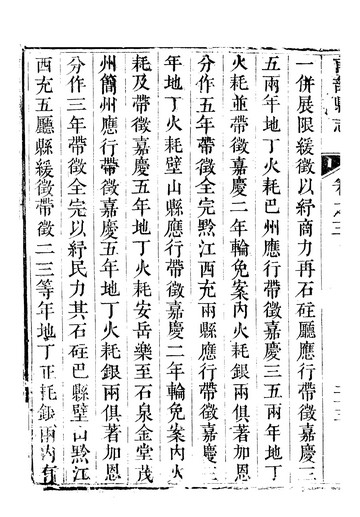 南部縣志
卷之三
一併展限緩徵以紓商力再石砫廳應行帶徵嘉慶三
五兩年地丁火耗巴州應行帶徵嘉慶三五兩年地丁
火耗並帶徵嘉慶二年輪免案內火耗銀兩俱著加恩
分作五年帶徵全完黔江西充兩縣應行帶徵嘉慶三
年地丁火耗壁山縣應行帶徵嘉慶二年輪免案內火
耗及帶徵嘉慶五年地丁火耗安岳樂至石泉金堂茂
州簡州應行帶徵嘉慶五年地丁火耗銀兩俱著加恩
分作三年帶徵全完以紓民力其石砫巴縣壁山黔江
西充五廳縣緩徵帶徵二三等年地丁正耗銀兩內有